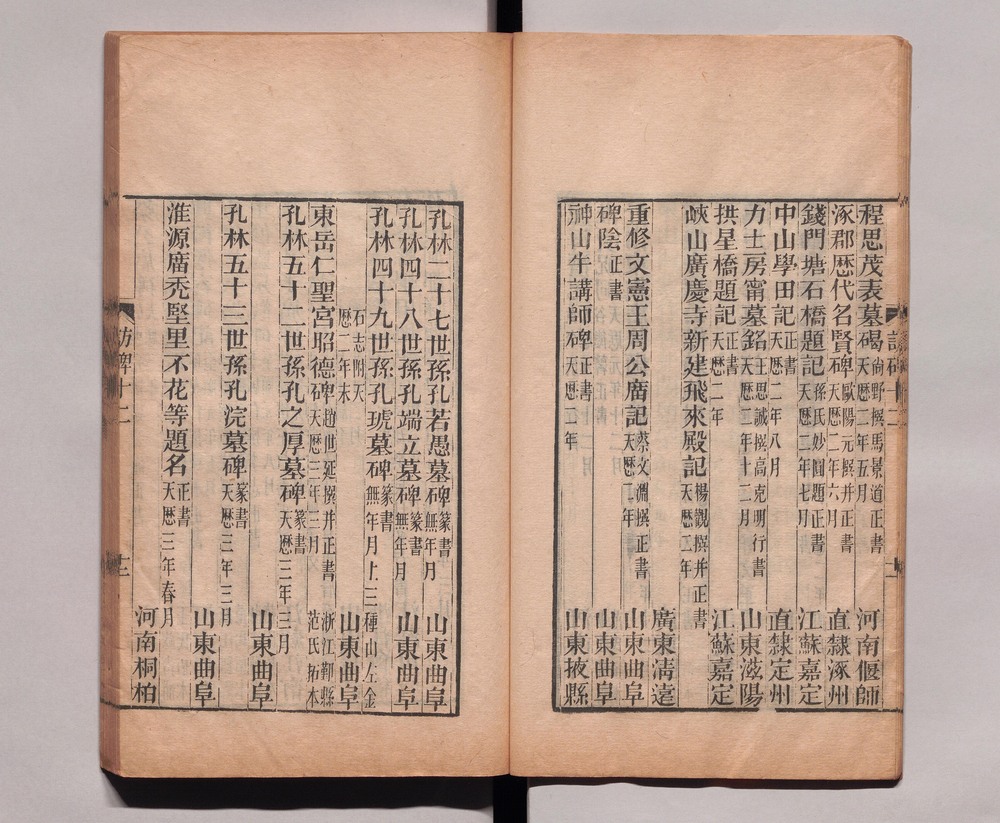 程思茂表墓碣尚野撰馬景道正書天歷二年五月 河南偃師
涿郡歷代名賢碑歐陽元撰并正書天歷二年六月 直隸涿州
錢門塘石橋題記孫氏妙圓題正書天歷二年七月 江蘇嘉定
中山學田記正書天歷二年八月 直隸定州
力士房甯墓銘王思誠撰高克明行書天歷二年十二月 山東滋陽
拱星橋題記正書天歷二年 江蘇嘉定
峽山廣慶寺新建飛來殿記楊觀撰并正書天歷二年
廣東淸遠
重修文憲王周公廟記蔡文淵撰正書天歷二年 山東曲阜
碑陰正書 山東曲阜
神山牛講師碑正書天歷二年 山東掖縣
訪碑十二
十一
孔林二十七世孫孔若愚墓碑篆書無年月 山東曲阜
孔林四十八世孫孔端立墓碑篆書無年月 山東曲阜
孔林四十九世孫孔琥墓碑篆書無年月上三種山左金
石志附天歷二年末 山東曲阜
東岳仁聖宮昭德碑趙世延撰并正書天歷三年三月 浙江鄞縣范氏拓本
孔林五十二世孫孔之厚墓碑篆書天歷三年三月
山東曲阜
孔林五十三世孫孔浣墓碑篆書天歷三年三月
山東曲阜
淮源廟禿堅里不花等題名正書天歷三年春月
河南桐柏
訪碑十二
十二